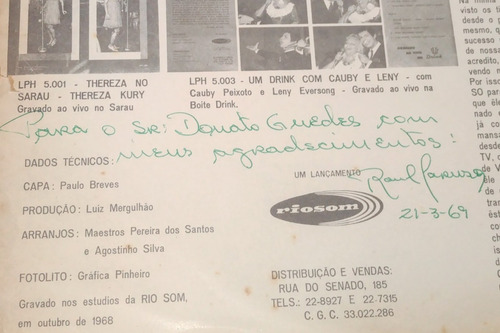 LPH 5.001 - THEREZA NO
SARAU - THEREZA KURY
Gravado ao vivo no Sarau
LPH 5.003 - UM DRINK COM CAUBY E LENY - com
Cauby Peixoto e Leny Eversong - Gravado ao vivo na
Boite Drink.
Para o Sr: Donato Guedes com
meus agradecimentos!
DADOS TÉCNICOS:
CAPA: Paulo Breves
PRODUÇÃO: Luiz Mergulhão
ARRANJOS: Maestros Pereira dos Santos
e Agostinho Silva
FOTOLITO: Gráfica Pinheiro
Gravado nos estudios da RIO SOM,
em outubro de 1968
UM LANÇAMENTO
riosom
Raul
21-3-69
DISTRIBUIÇÃO E VENDAS:
RUA DO SENADO, 185
TELS.: 22-8927 E 22-7315
C. G. C. 33.022.286
visto os
desde o
mesmo, q
sucesso
de noss
acredito,
vendo n
Por isso
SÓ para
época,
mansa
TV,
de V
Ele
de c
tran